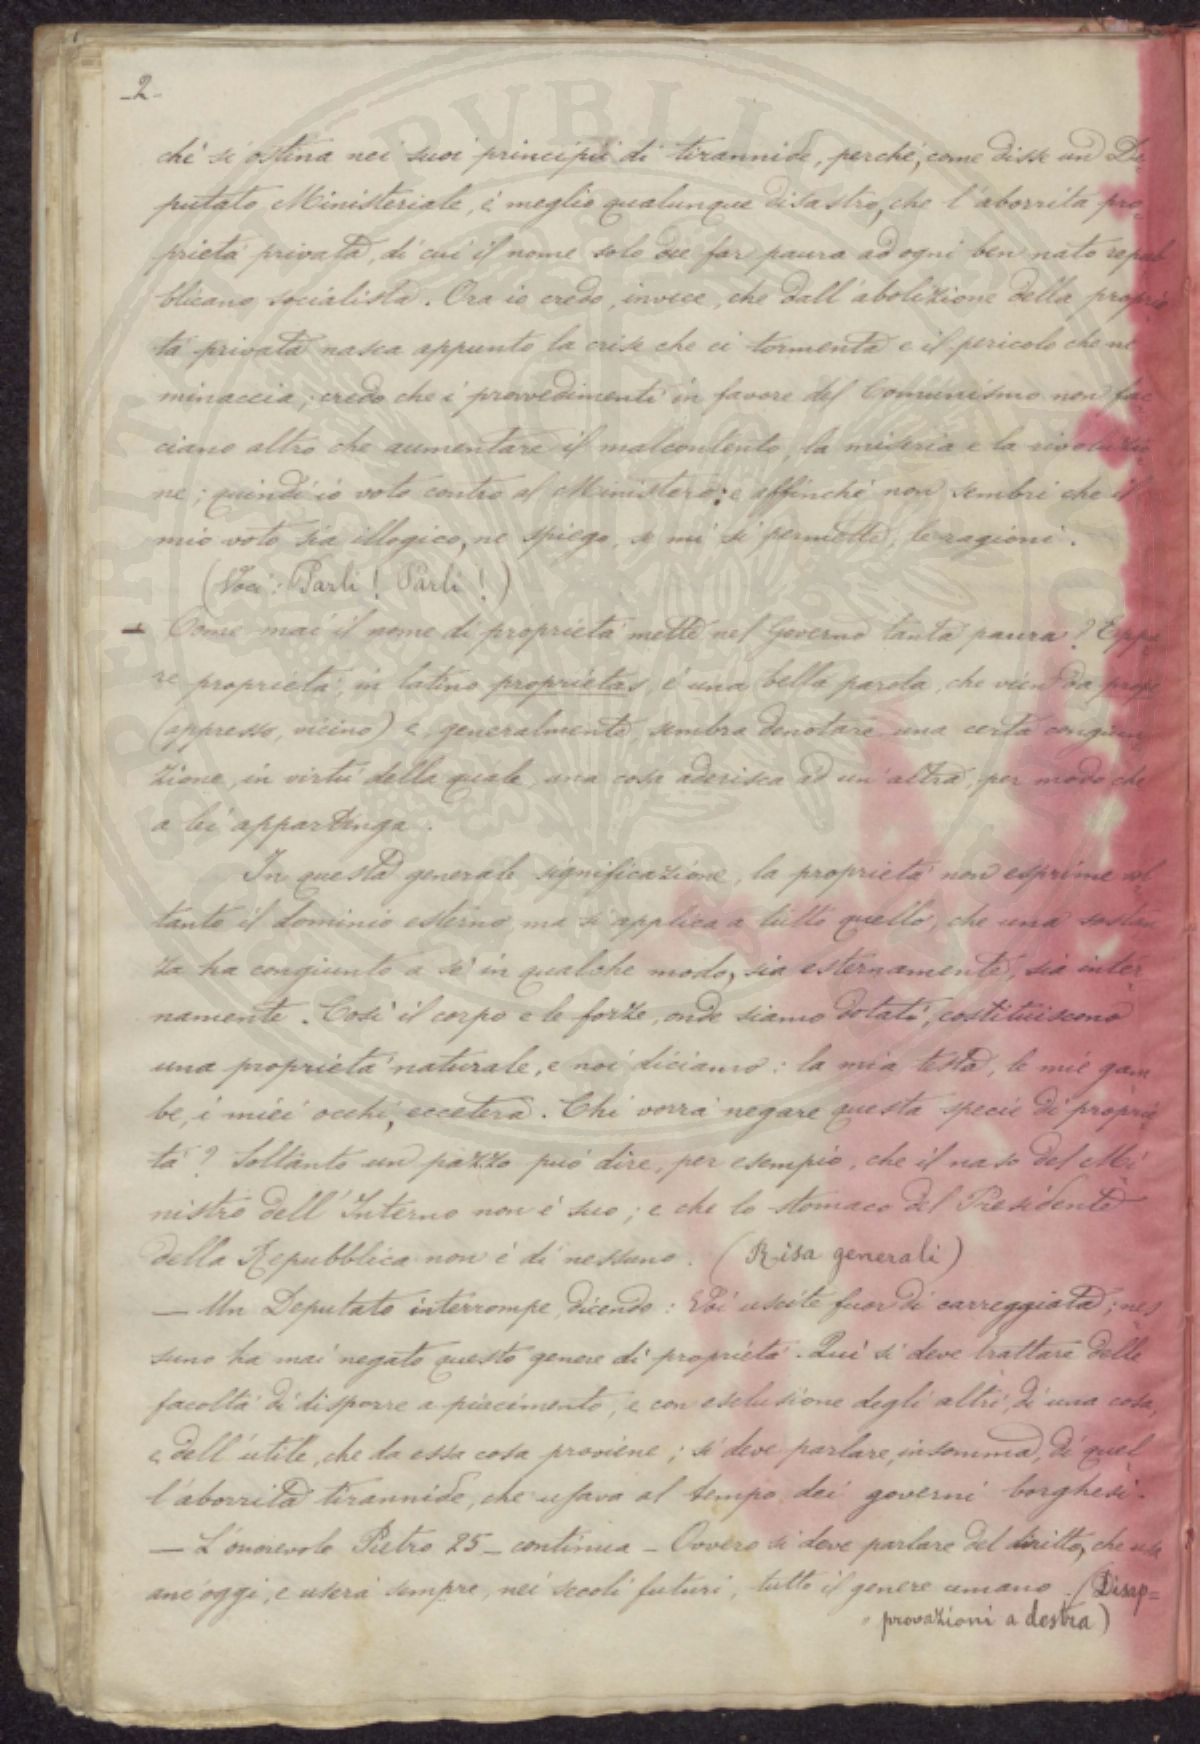 -2-
chè si ostina nei suoi principii di tirannide, perchè, come disse un De-
putato Ministeriale, è meglio qualunque disastro, che l'aborrita pro-
prietà privata, di cui il nome solo dee far paura ad ogni ben nato repub
blicano socialista. Ora io credo, invece, che dall'abolizione della proprie
tà privata nasca appunto la crise che ci tormenta e il pericolo che ne
minaccia; credo che i provvedimenti in favore del Comunismo non fac-
ciano altro che aumentare il malcontento, la miseria e la rivoluzio-
ne; quindi io voto contro al Ministero; e affinchè non sembri che il
mio voto sia illogico, ne spiego, se mi si permette, le ragioni.
(Voci: Parli! Parli!)
— Come mai il nome di proprietà mette nel Governo tanta paura? Eppu
re proprietà, in latino proprietas, è una bella parola, che vien da prope
(appresso, vicino) e, generalmente, sembra denotare una certa congiun-
zione, in virtù della quale una cosa aderisca ad un'altra, per modo che
a lei appartenga.
In questa generale significazione, la proprietà non esprime sol-
tanto il dominio esterno, ma si applica a tutto quello, che una sostan
za ha congiunto a sè in qualche modo, sia esternamente, sia inter-
namente. Così il corpo e le forze, onde siamo dotati, costituiscono
una proprietà naturale, e noi diciamo: la mia testa, le mie gam
be, i miei occhi, eccetera. Chi vorrà negare questa specie di proprie
tà? Soltanto un pazzo può dire, per esempio, che il naso del Mi
nistro dell'Interno non è suo; e che lo stomaco del Presidente
della Repubblica non è di nessuno. (Risa generali)
— Un Deputato interrompe, dicendo: Voi uscite fuor di carreggiata; nes
suno ha mai negato questo genere di proprietà. Qui si deve trattare delle
facoltà di disporre a piacimento, e con esclusione degli altri, di una cosa,
e dell'utile, che da essa cosa proviene; si deve parlare, insomma, di quel-
l'aborrita tirannide, che usava al tempo dei governi borghesi.
— L'onorevole Pietro 25 — continua — Ovvero si deve parlare del diritto, che usa
anc'oggi, e userà sempre, nei secoli futuri, tutto il genere umano. (Disap=
provazioni a destra)